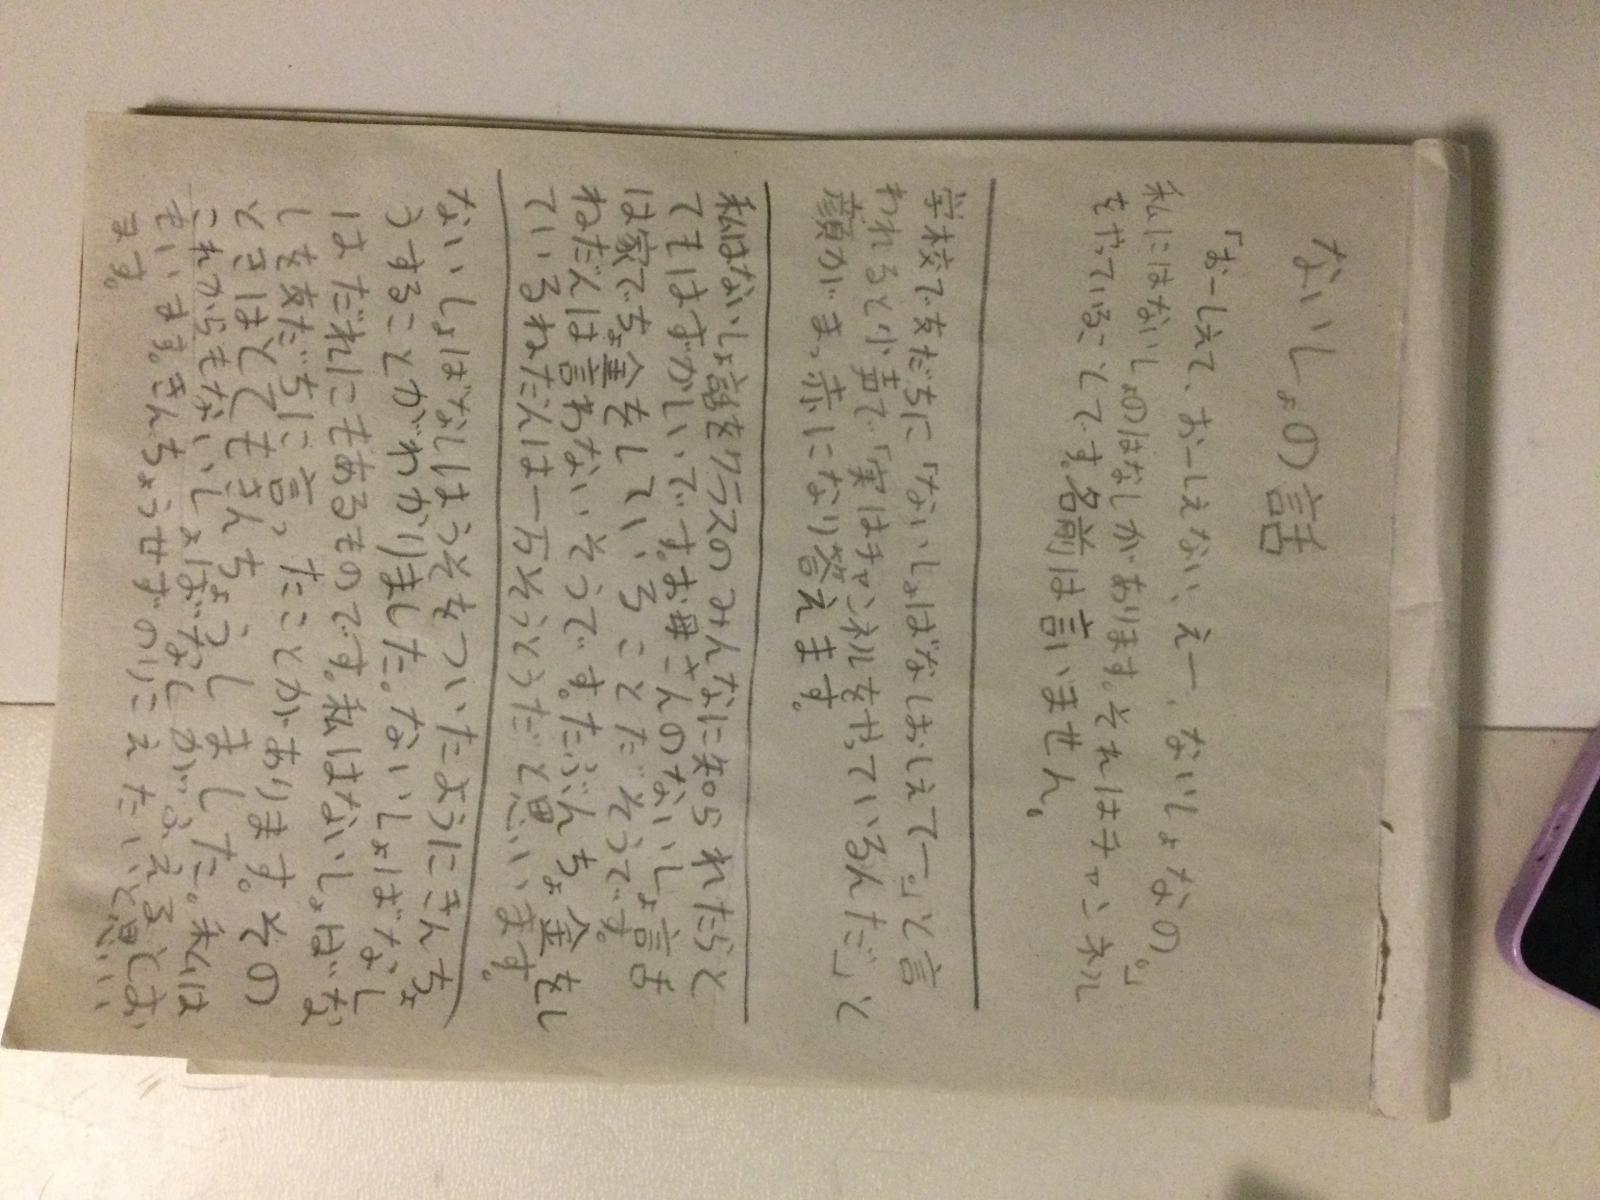 ないしょの話
「おーしえて、おーしえない、えー、ないしょなの。」
私にはないしょのはなしがあります。それはチャンネル
をやっていることです。名前は言いません。
学校で友だちに「ないしょばなしおしえてー。」と言
われると小声で「実はチャンネルをやっているんだ」と
顔がまっ赤になり答えます。
私はないしょ話をクラスのみんなに知られたらと
てもはずかしいです。お母さんのないしょ話
は家でちょ金をしていることだそうです。
ねだんは言わないそうです。たぶんちょ金をし
ているねだんは一万そうとうだと思います。
ないしょばなしはうそをついたようにきんちょ
うすることがわかりました。ないしょばなし
はだれにもあるものです。私はないしょばな
しを友だちに言ったことがあります。その
ときはとてもきんちょうしました。私は
これからもないしょばなしがふえるとお
もいます。きんちょうせずのりこえたいと思い
ます。